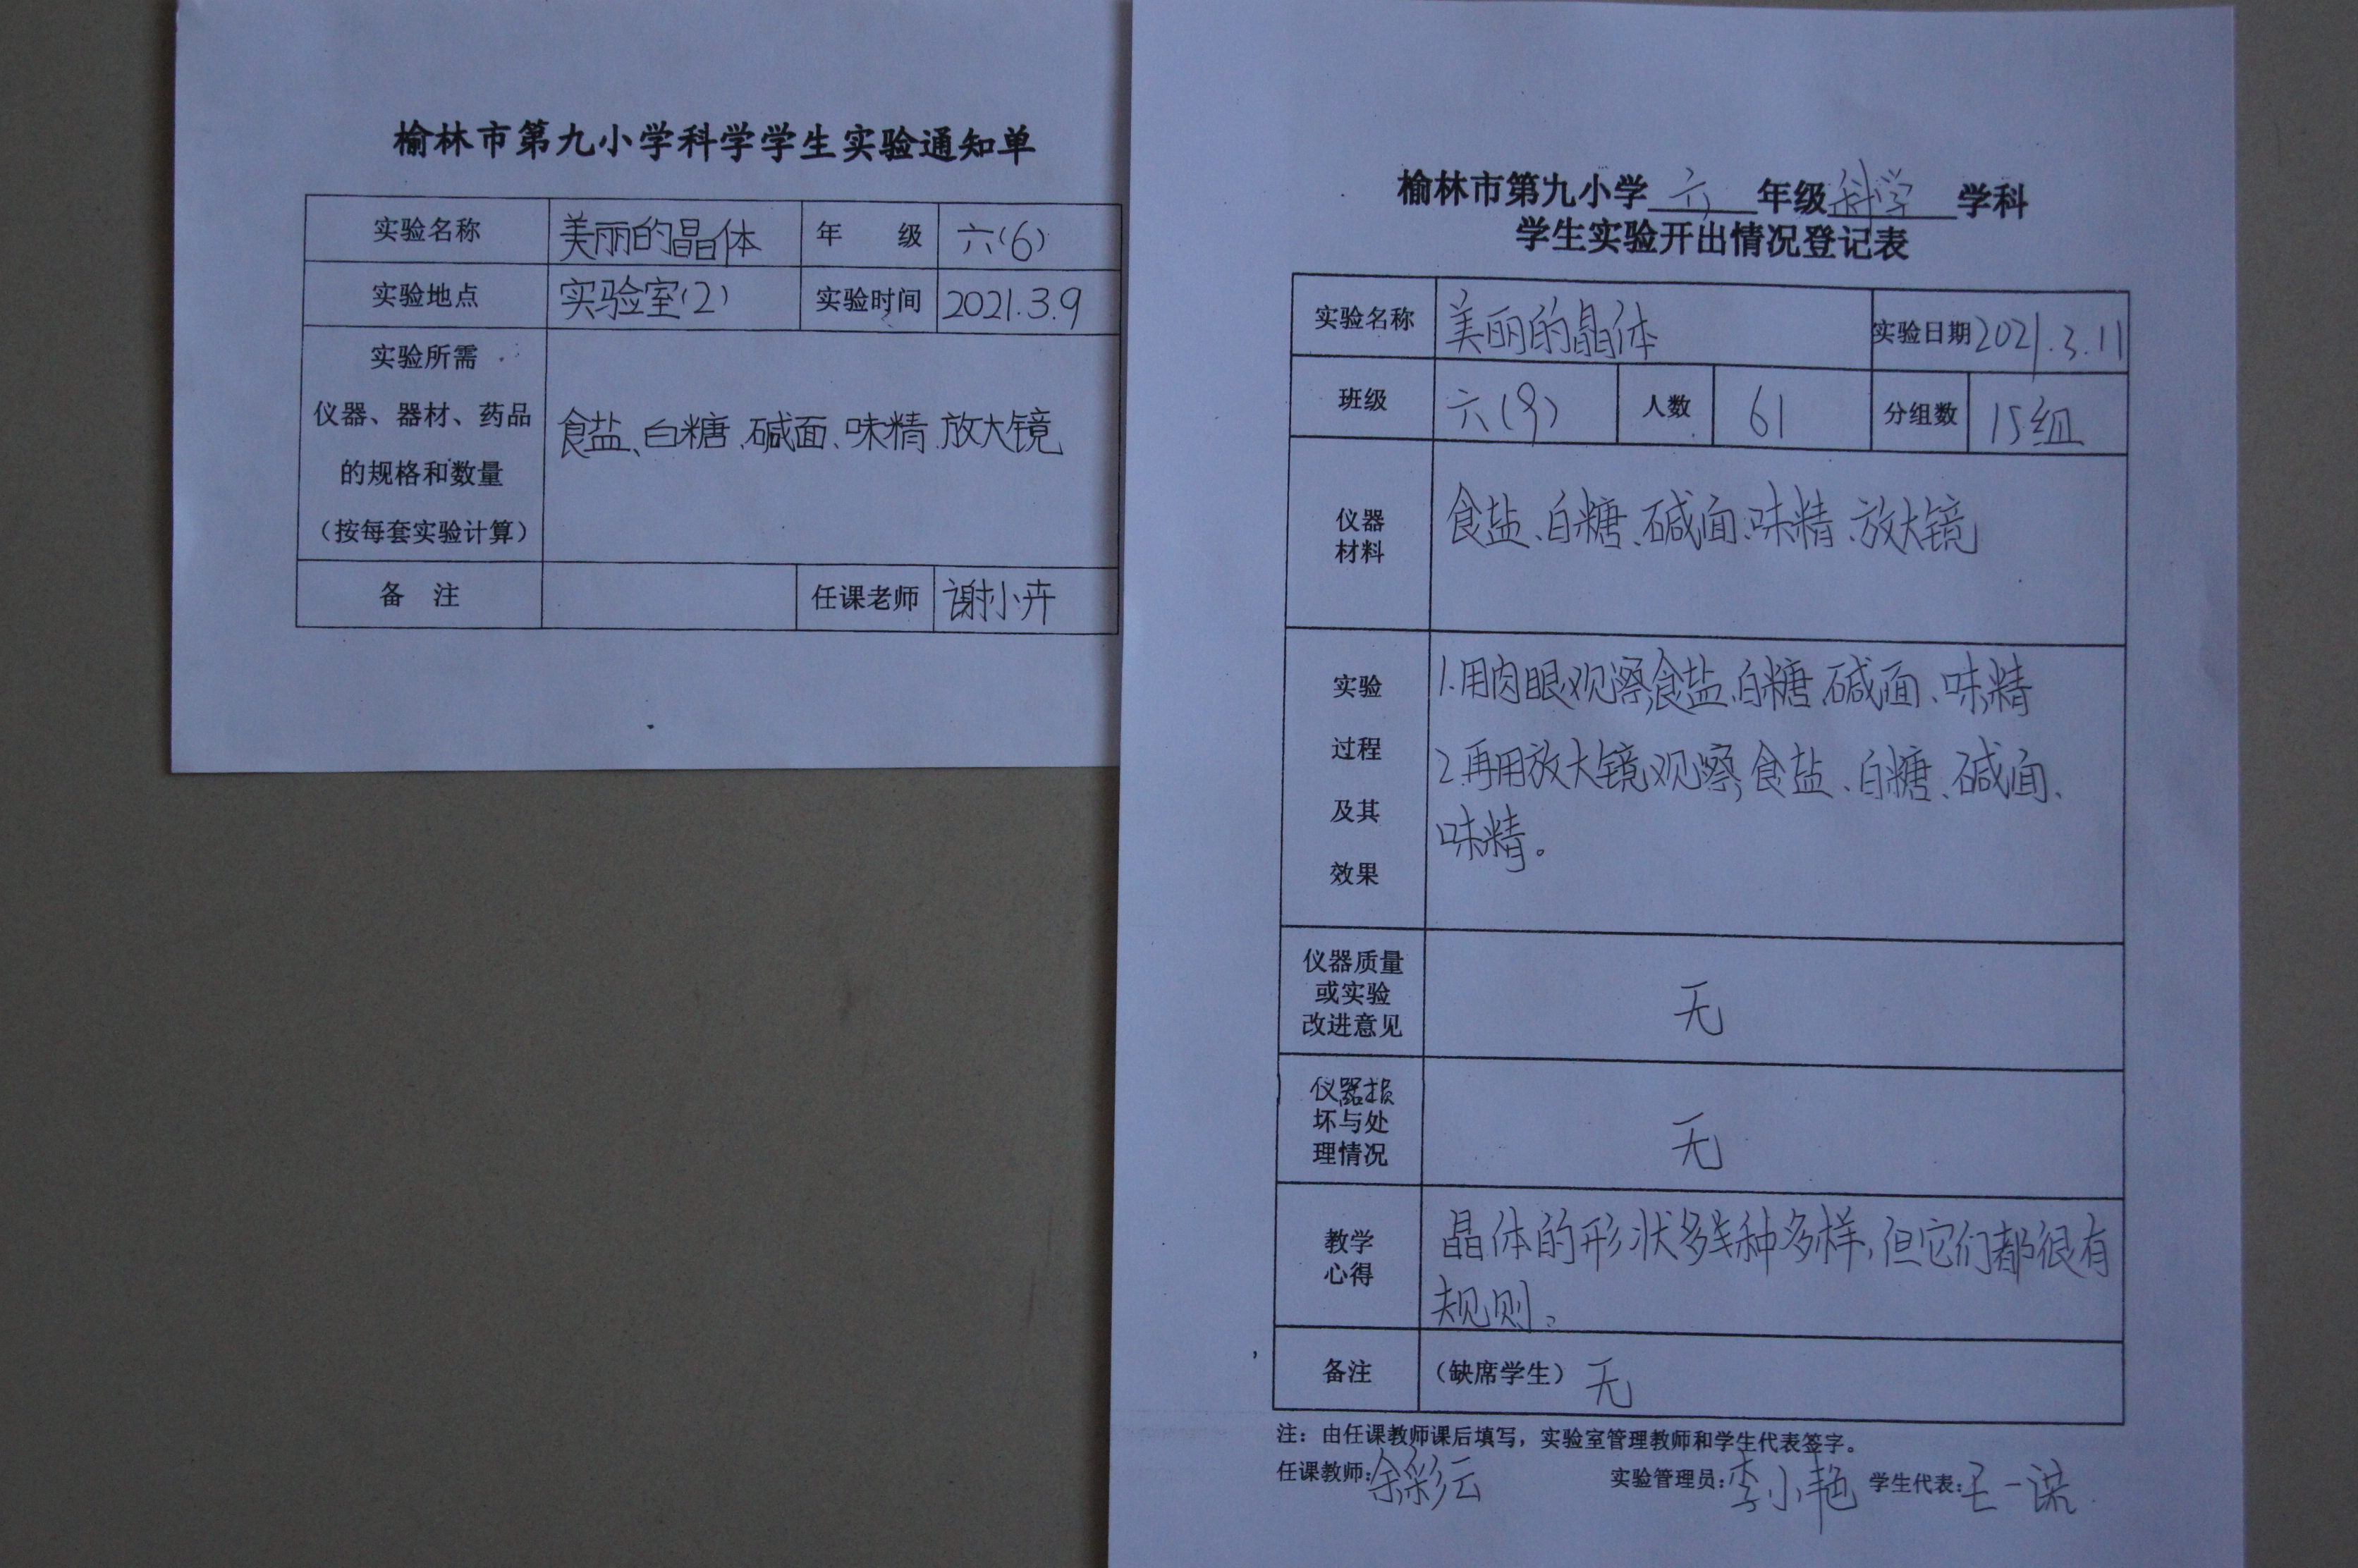 榆林市第九小学科学学生实验通知单
实验名称 美丽的晶体 年 级 六(6)
实验地点 实验室(2) 实验时间 2021.3.9
实验所需
仪器、器材、药品
的规格和数量
(按每套实验计算)
食盐、白糖、碱面、味精、放大镜
备 注 任课老师 谢小卉
榆林市第九小学 六 年级 科学 学科
学生实验开出情况登记表
实验名称 美丽的晶体 实验日期 2021.3.11
班级 六(9) 人数 61 分组数 15组
仪器
材料
食盐、白糖、碱面、味精、放大镜
实验
过程
及其
效果
1.用肉眼观察食盐、白糖、碱面、味精
2.再用放大镜观察食盐、白糖、碱面、
味精。
仪器质量
或实验
改进意见
无
仪器损
坏与处
理情况
无
教学
心得
晶体的形状多种多样,但它们都很有
规则。
备注 (缺席学生) 无
注:由任课教师课后填写,实验室管理教师和学生代表签字。
任课教师:余彩云 实验管理员:李小艳 学生代表:王一诺